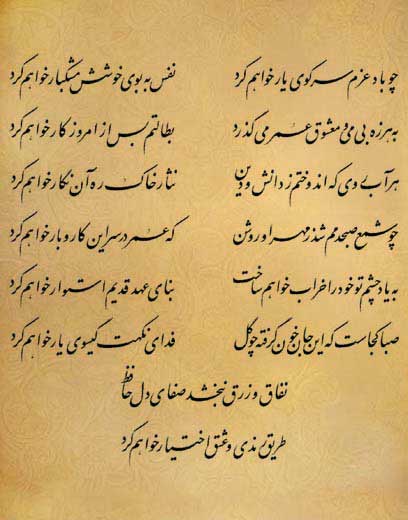 چو باد عزم سر کوی یار خواهم کرد نفس به بوی خوشش مشکبار خواهم کرد
به هرزه بی می و معشوق عمر می گذرد بطالتم بس از امروز کار خواهم کرد
هر آبروی که اندوختم ز دانش و دین نثار خاک ره آن نگار خواهم کرد
چو شمع صبحدمم شد ز مهر او روشن که عمر در سر این کار و بار خواهم کرد
به یاد چشم تو خود را خراب خواهم ساخت بنای عهد قدیم استوار خواهم کرد
صبا کجاست که این جان خون گرفته چو گل فدای نکهت گیسوی یار خواهم کرد
نفاق و زرق نبخشد صفای دل حافظ
طریق رندی و عشق اختیار خواهم کرد